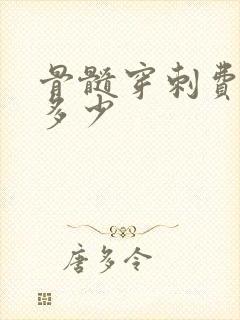 骨髓穿刺费
多少
唐多令